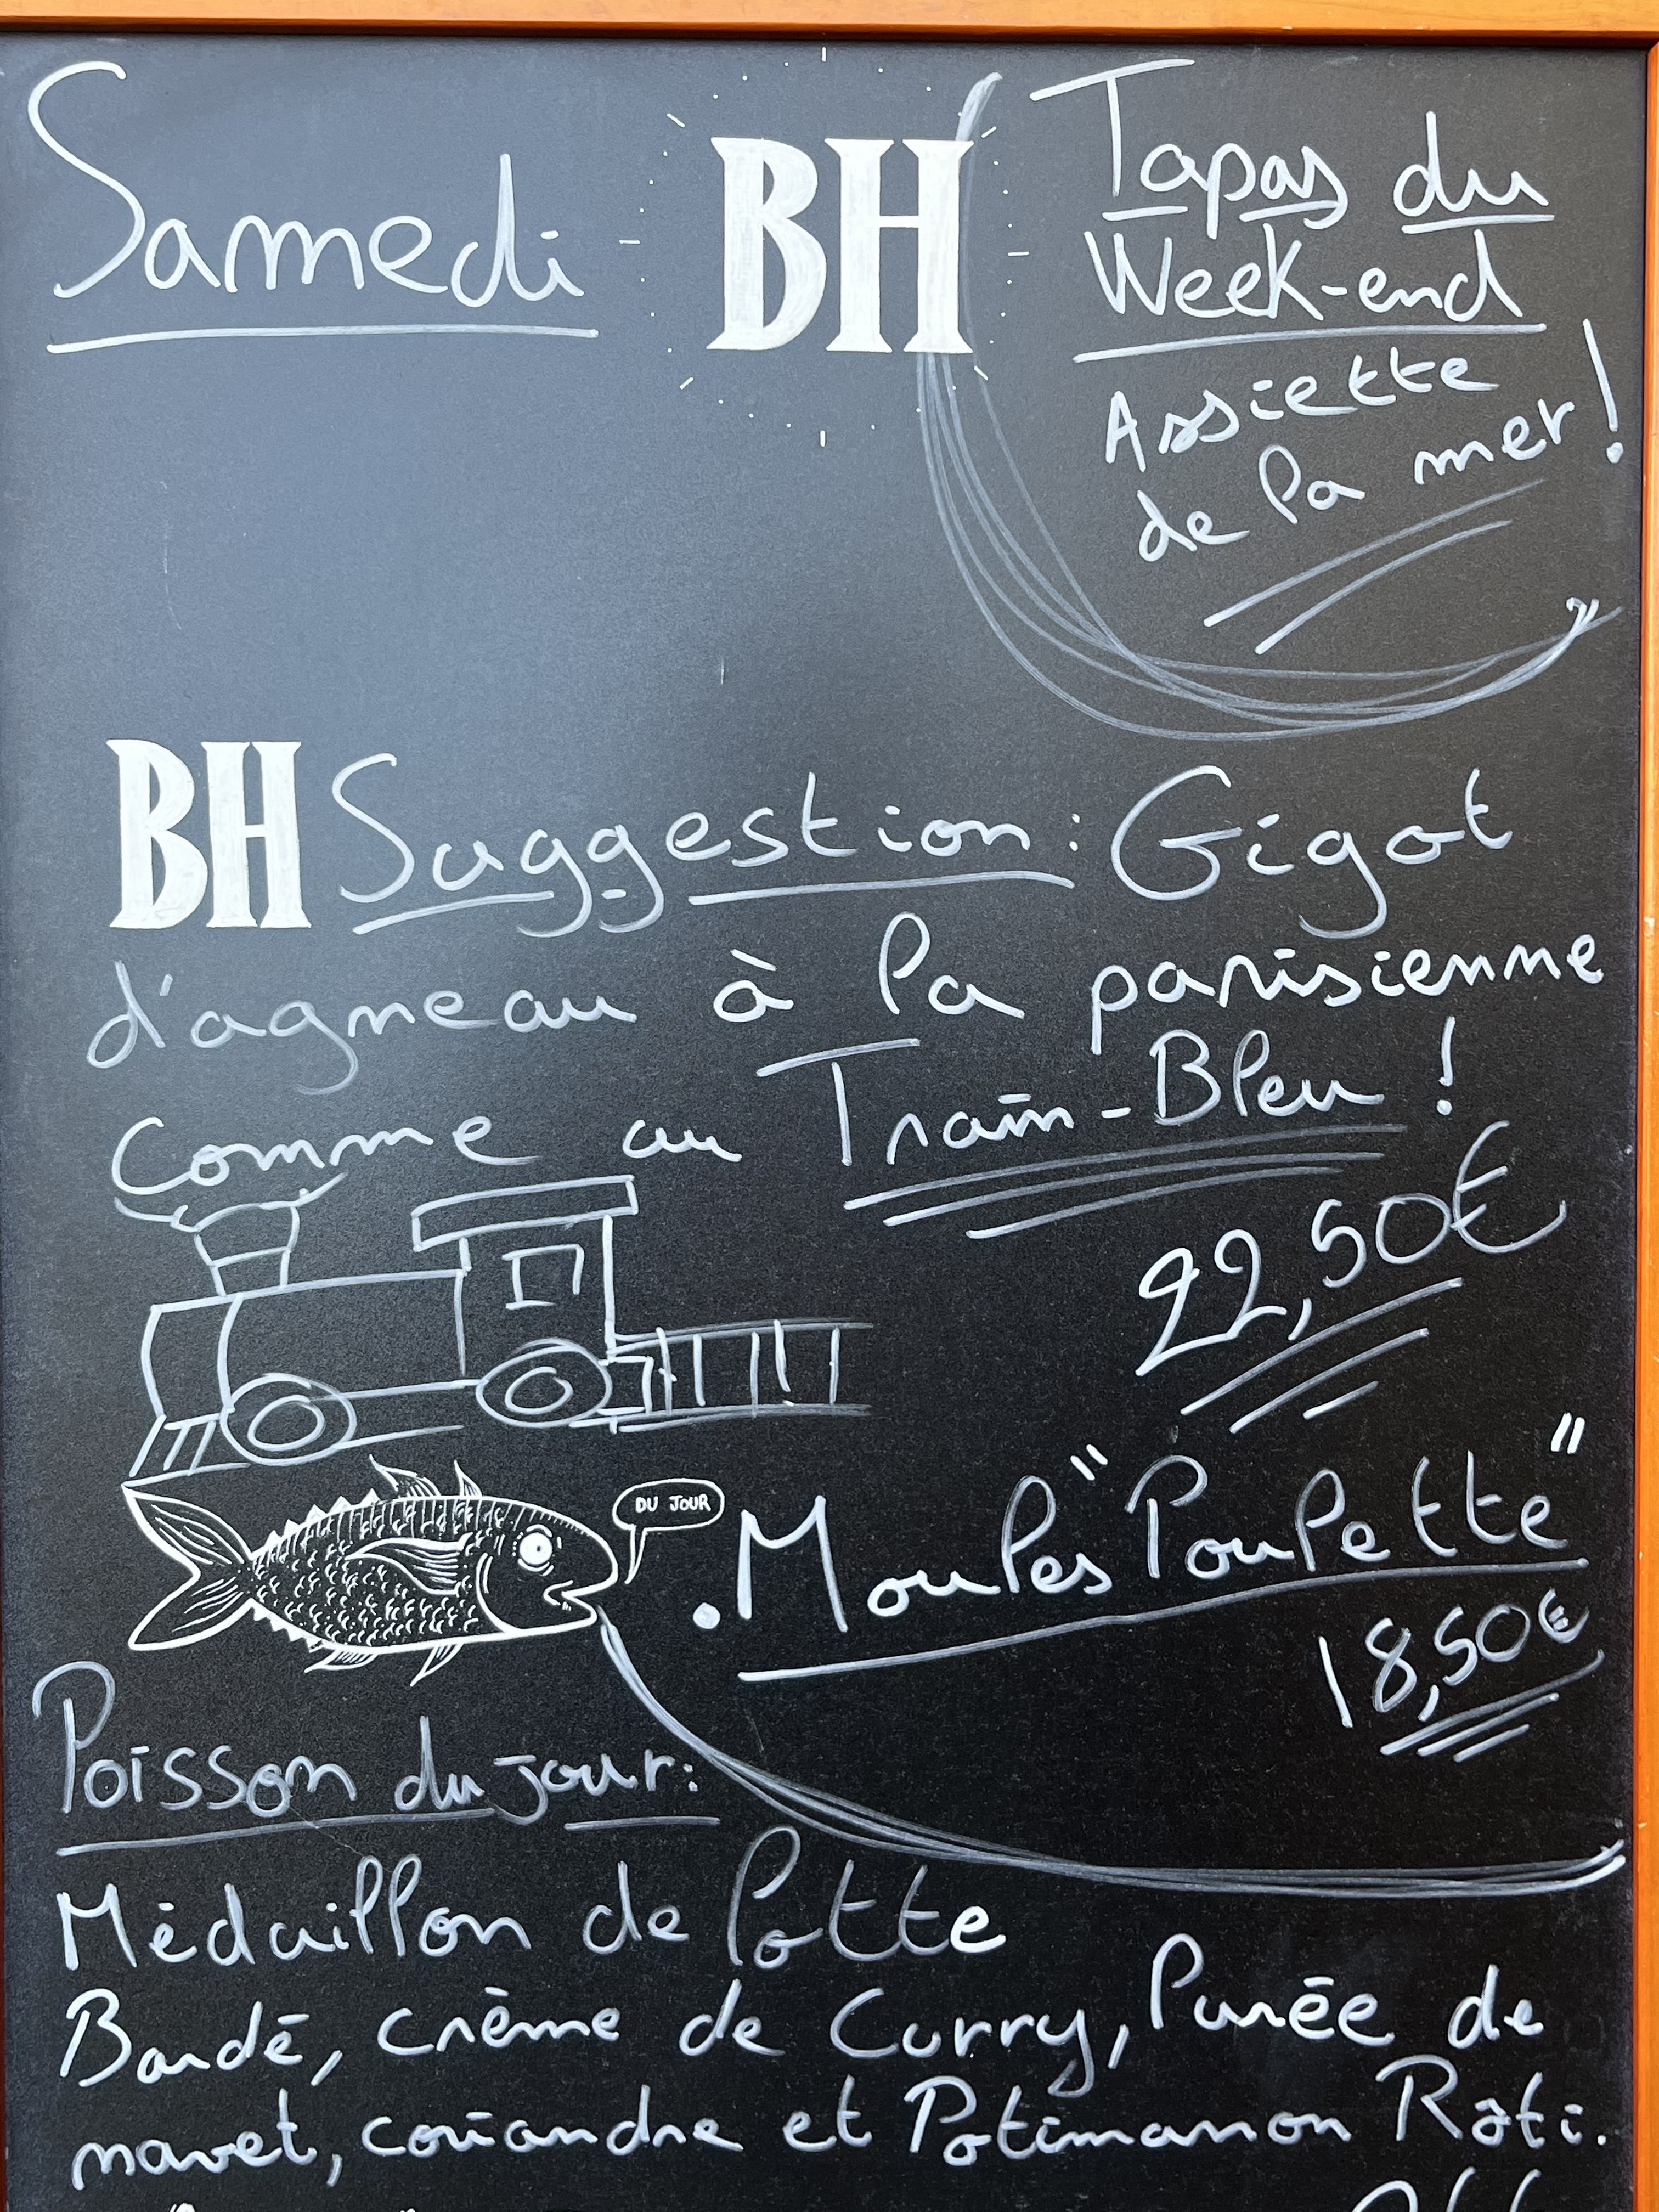 Samedi
BH
Tapas du
Week-end
Assiette
de la mer !
BH Suggestion : Gigot
d'agneau à la parisienne
Comme au Train-Bleu !
22,50€
DU JOUR
. Moules "Poulette"
18,50€
Poisson du jour :
Médaillon de lotte
Bardé, crème de Curry, Purée de
navet, coriandre et Potimarron Rôti.